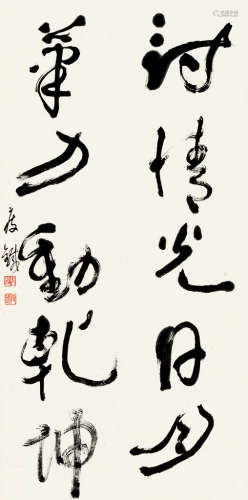 詩情光日月
筆力動乾坤